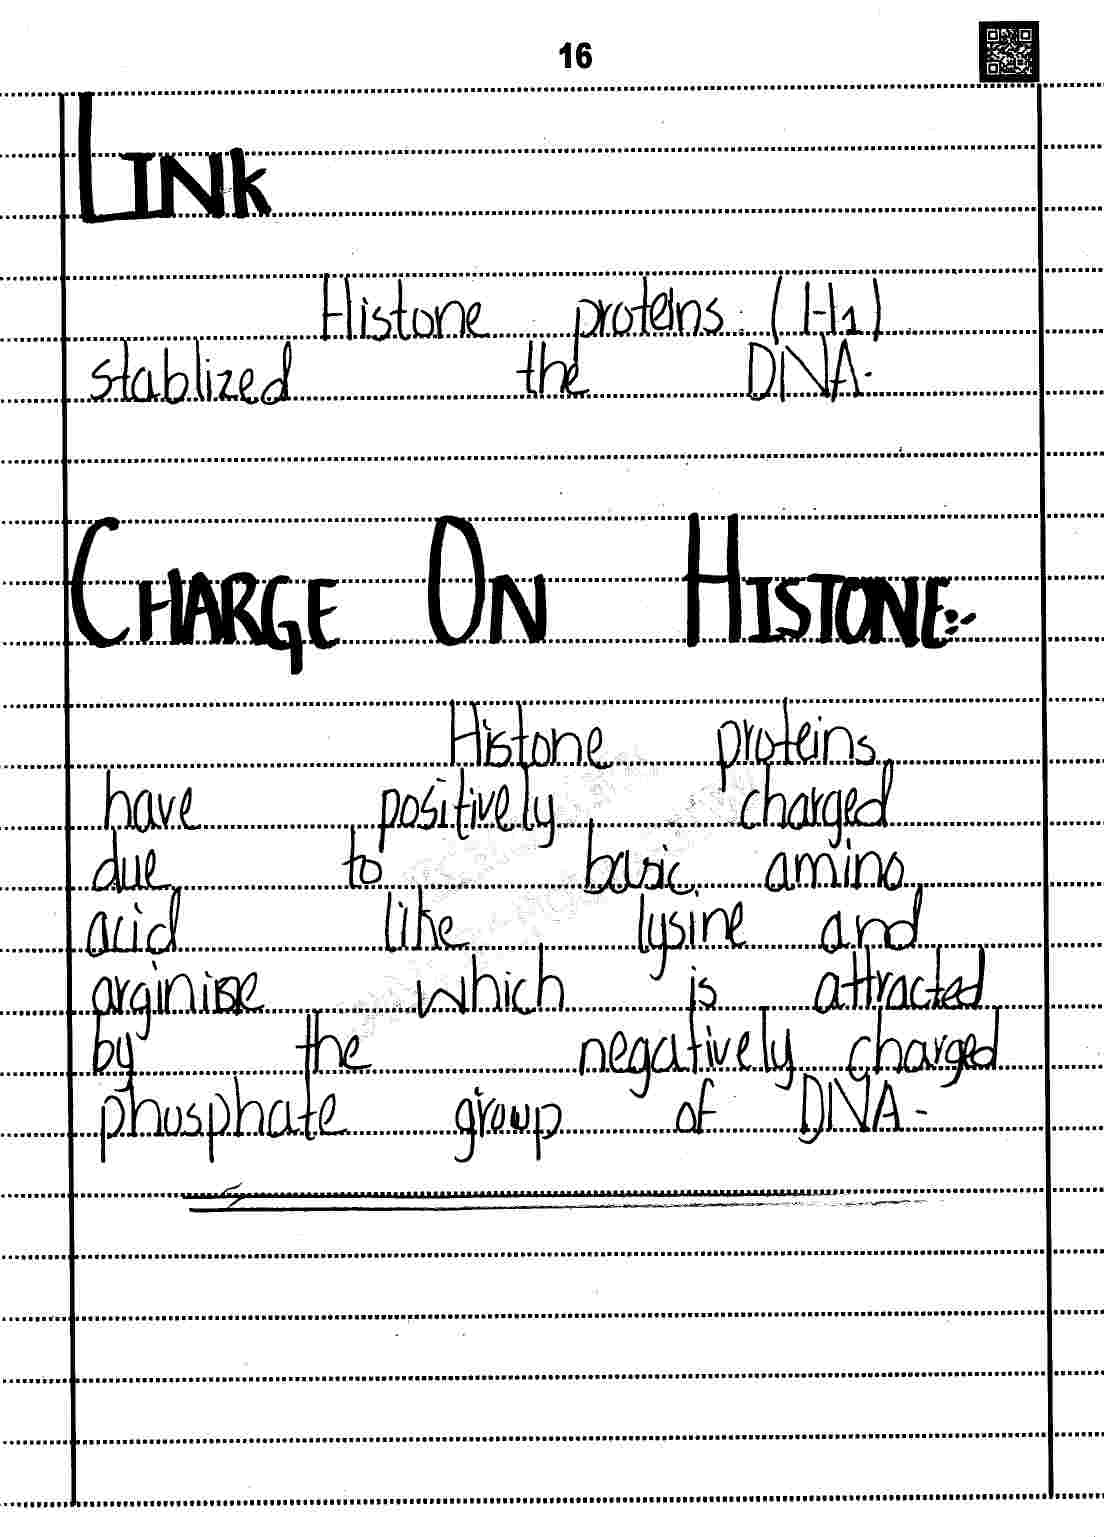 16
LINK
Histone proteins (H1)
stablized the DNA.
CHARGE ON HISTONE:-
Histone proteins
have positively charged
due to basic amino
acid like lysine and
arginine which is attracted
by the negatively charged
phosphate group of DNA-